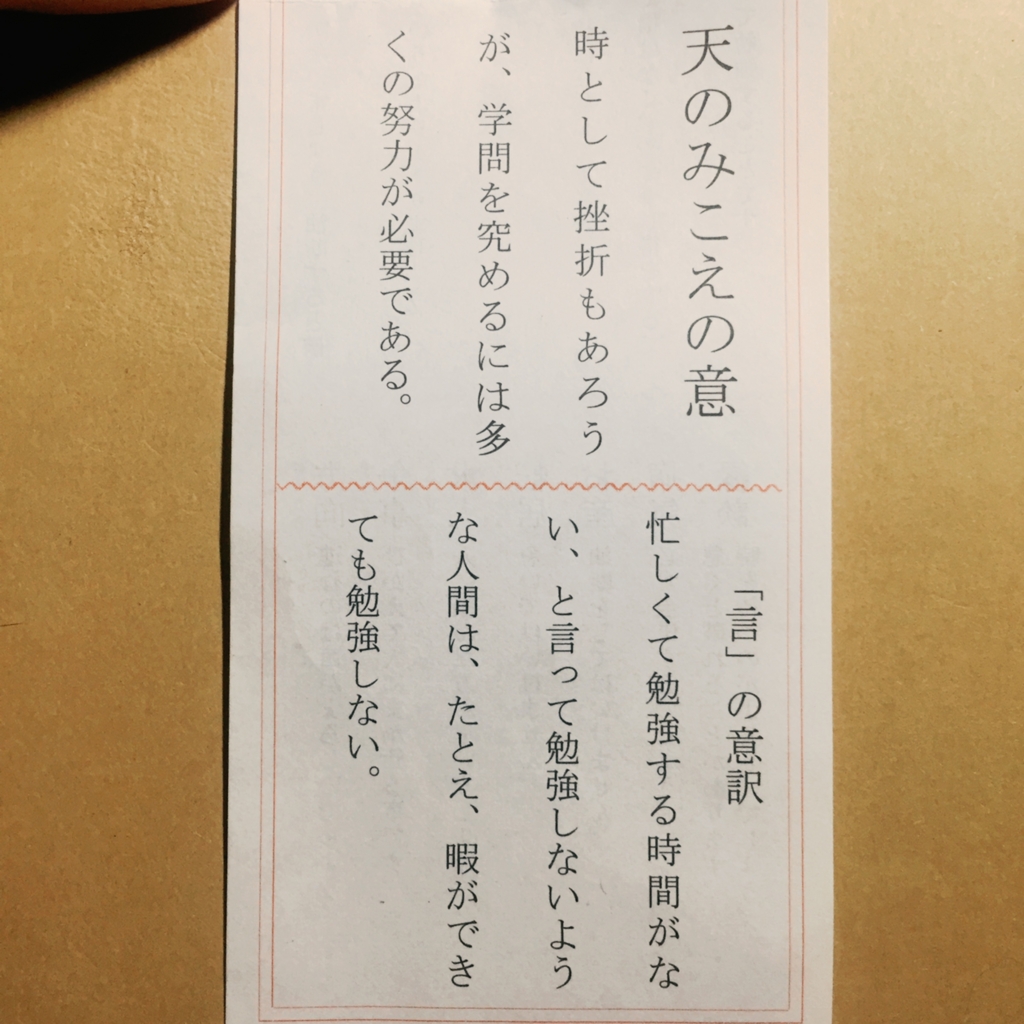 天のみこえの意
時として挫折もあろう
が、学問を究めるには多
くの努力が必要である。
「言」の意訳
忙しくて勉強する時間がな
い、と言って勉強しないよう
な人間は、たとえ、暇ができ
ても勉強しない。